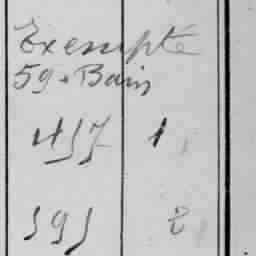 Exempté
59. Bain
457 1
595 2